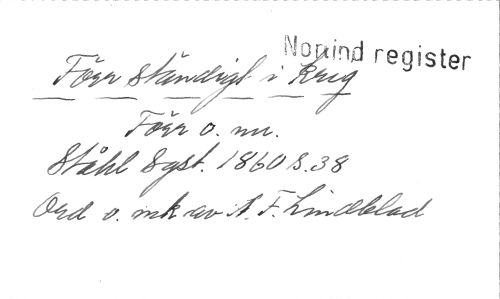 Nomind register
Förr ständigt i krig
Förr o. nu.
Ståhl Syst. 1860 s. 38
Ord o. mk av A. F. Lindblad